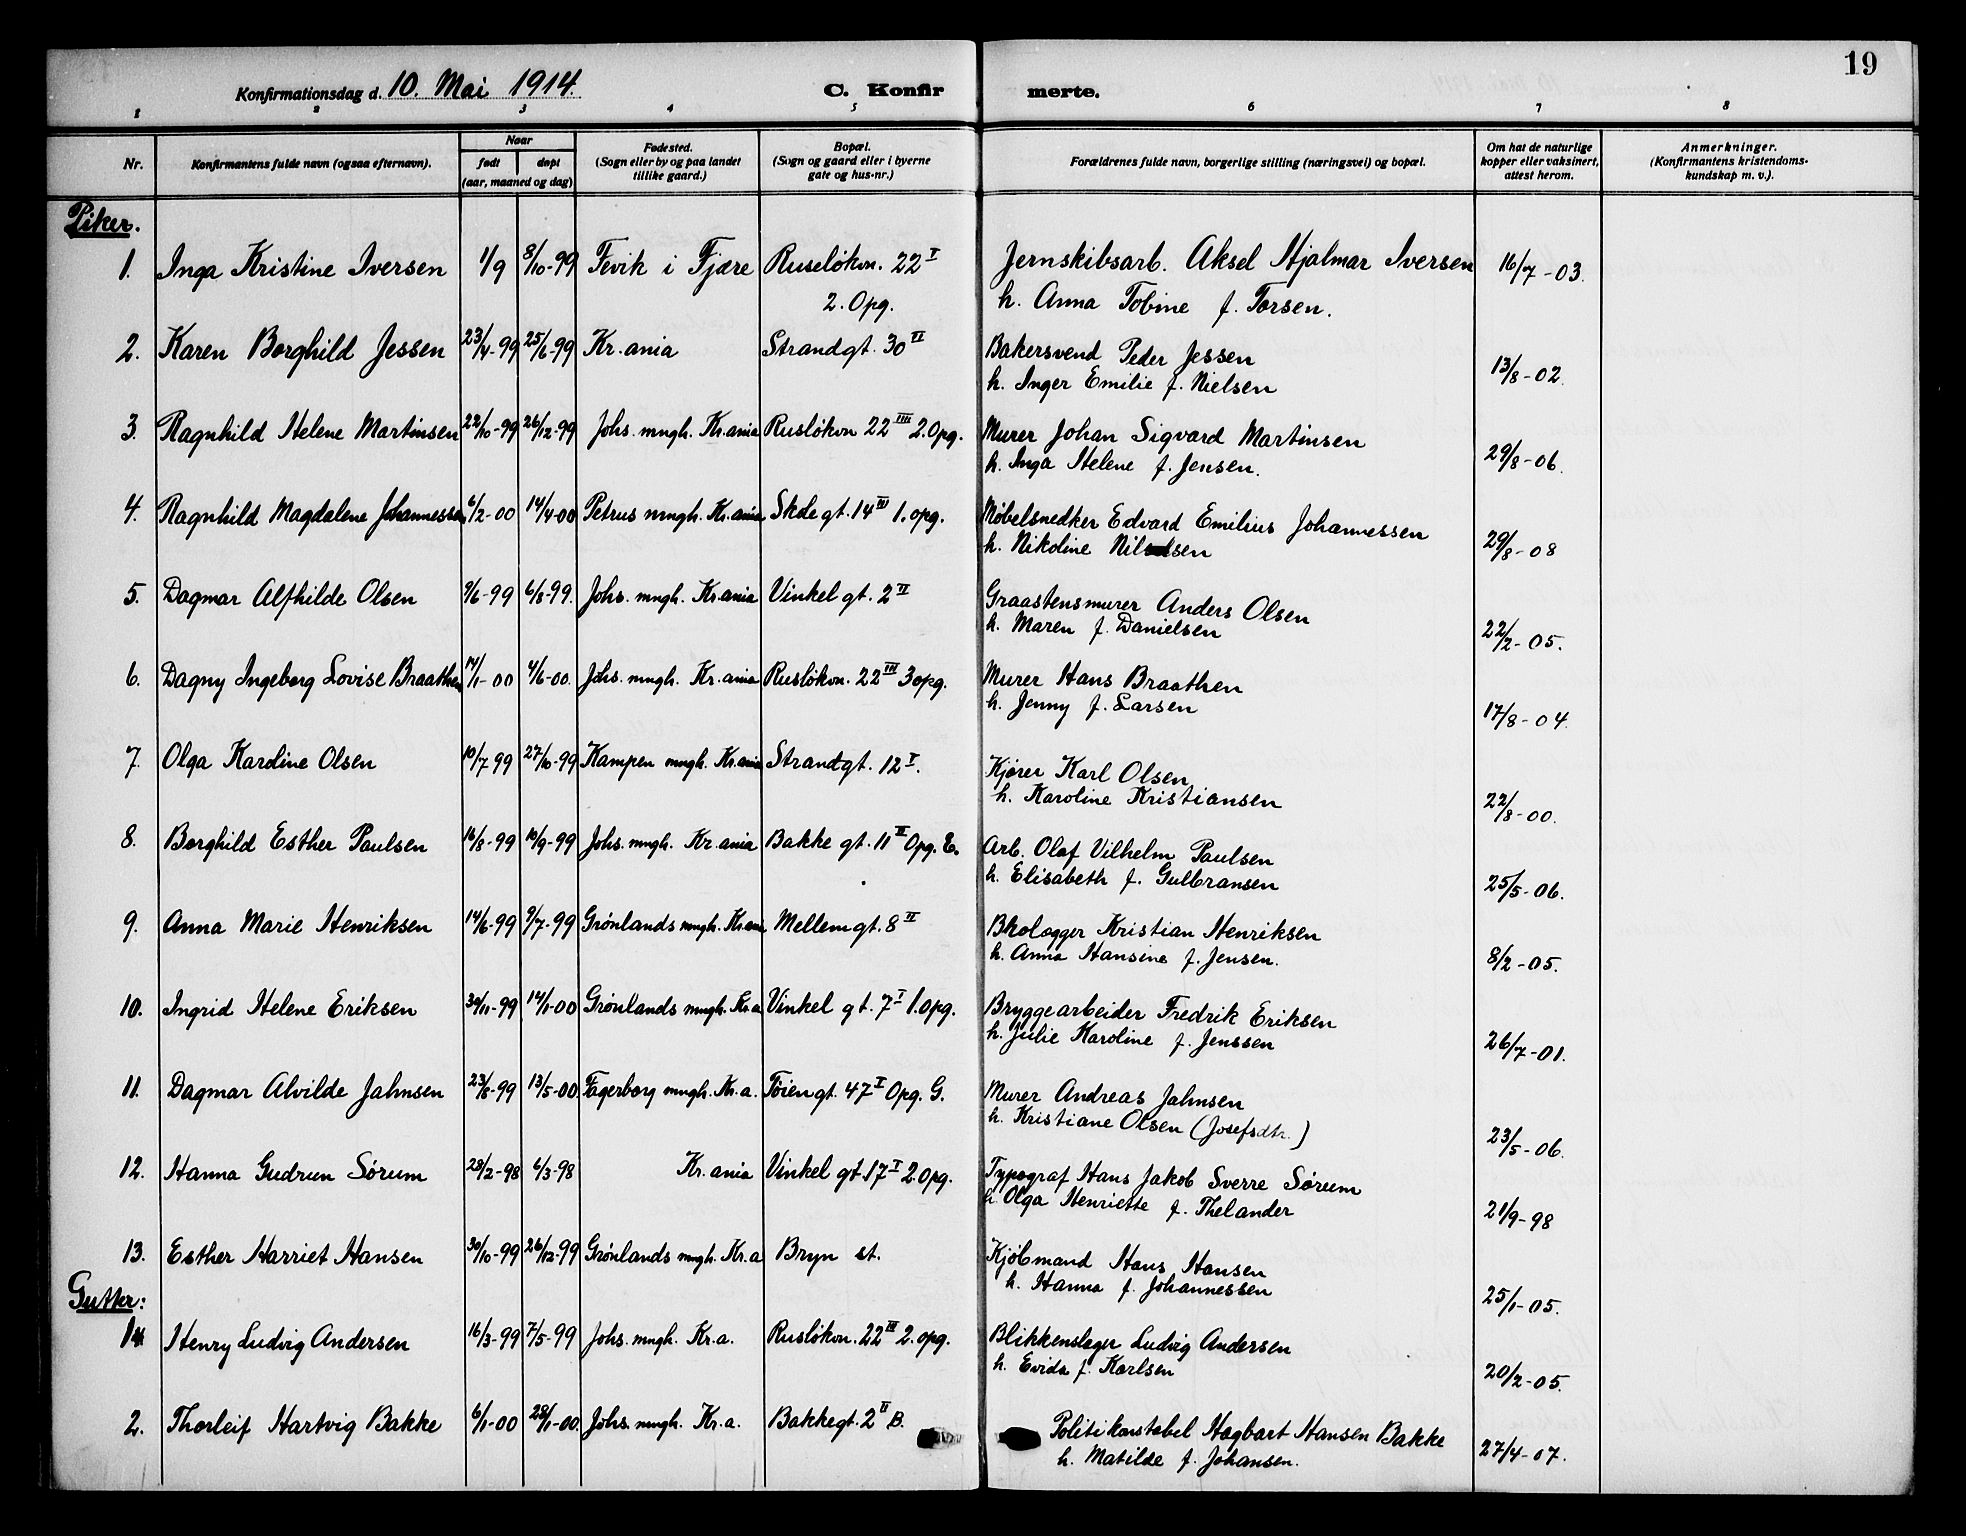 19
Konfirmationsdag d. 10. Mai 1914. C. Konfir merte.
1 2 3 4 5 6 7 8
Nr.
Konfirmantens fulde navn (ogsaa efternavn).
Naar
født døpt
(aar, maaned og dag)
Fødested.
(Sogn eller by og paa landet
tillike gaard.)
Bopæl.
(Sogn og gaard eller i byerne
gate og hus-nr.)
Forældrenes fulde navn, borgerlige stilling (næringsvei) og bopæl.
Om hat de naturlige
kopper eller vaksinert,
attest herom.
Anmerkninger.
(Konfirmantens kristendoms-
kundskap m. v.).
Piker.
1. Inga Kristine Iversen 1/9 8/10-99 Fevik i Fjære Ruseløkvn. 22 I Jernskibsarb. Aksel Hjalmar Iversen 16/7-03.
2. Opg. h. Anna Tobine f. Torsen.
2. Karen Borghild Jessen 23/4-99 25/6-99 Kr.ania Strandgt. 30 II Bakersvend Peder Jessen 13/8-02.
h. Inger Emilie f. Nielsen
3. Ragnhild Helene Martinsen 22/10-99 26/12-99 Johs. mngh. Kr.ania Rusløkvn 22 III 2.Opg. Murer Johan Sigvard Martinsen 29/8-06.
h. Inga Helene f. Jensen.
4. Ragnhild Magdalene Johannessen 6/2-00 14/4-00 Petrus mngh. Kr.ania Skde gt. 14 IV 1.opg. Møbelsnedker Edvard Emilius Johannessen 29/8-08
h. Nikoline Nilsen
5. Dagmar Alfhilde Olsen 9/6-99 6/8-99. Johs. mngh. Kr.ania Vinkel gt. 2 II Graastensmurer Anders Olsen 22/2-05.
h. Maren f. Danielsen
6. Dagny Ingeborg Lovise Braathen 14/1-00 4/6-00. Johs. mngh. Kr.ania Rusløkvn. 22 III 3opg. Murer Hans Braathen 17/8-04.
h. Jenny f. Larsen
7. Olga Karoline Olsen 10/7 99 27/10-99 Kampen mngh. Kr.ania Strandgt. 12 I. Kjører Karl Olsen 22/8-00.
h. Karoline Kristiansen
8. Borghild Esther Paulsen 16/8-99 10/9-99 Johs. mngh. Kr.ania Bakke gt. 11 II Opg. E. Arb. Olaf Vilhelm Paulsen 25/5-06.
h. Elisabeth f. Gulbransen
9. Anna Marie Henriksen 14/6-99 9/7-99 Grønlands mngh. Kr.ania Mellemgt. 8 II Bkolægger Kristian Henriksen 8/2-05.
h. Anna Hansine f. Jensen.
10. Ingrid Helene Eriksen 30/11-99 14/1-00 Grønlands mngh. Kr.a Vinkel gt. 7 I 1.opg. Bryggearbeider Fredrik Eriksen 26/7-01.
h. Julie Karoline f. Jenssen
11. Dagmar Alvilde Jahnsen 23/8-99 13/5-00. Fagerborg mngh. Kr.a. Tøiengt. 47 I Opg. G. Murer Andreas Jahnsen 23/5-06.
h. Kristiane Olsen (Josefsdtr.)
12. Hanna Gudrun Sørum 28/2-98 6/3-98 Kr.ania Vinkel gt. 17 I 2.Opg. Typograf Hans Jakob Sverre Sørum 21/9-98
h. Olga Henriette f. Thelander
13. Esther Harriet Hansen 30/10-99 26/12-99 Grønlands mngh. Kr.a Bryn st. Kjøbmand Hans Hansen 25/1-05.
h. Hanna f. Johannessen
Gutter:
1. Henry Ludvig Andersen 16/3-99 7/5-99 Johs. mngh. Kr.a. Rusløkvn. 22 III 2.opg. Blikkenslager Ludvig Andersen 20/2-05.
h. Evida f. Karlsen
2. Thorleif Hartvig Bakke 6/1-00 28/1-00. Johs. mngh. Kr.a. Bakkegt. 2 II B. Politikonstabel Hagbart Hansen Bakke 27/4-07.
h. Matilde f. Johansen.